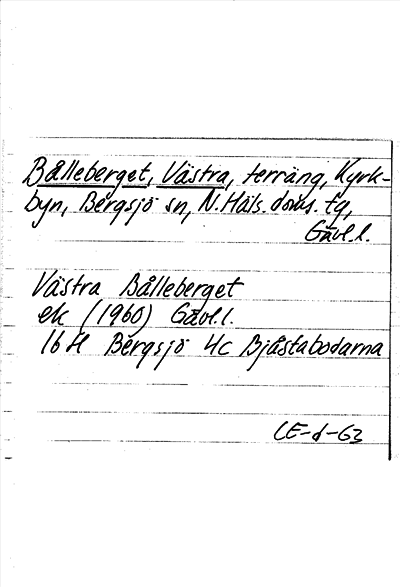 Bålleberget, Västra, terräng, Kyrk-
byn, Bergsjö sn, N. Häls. doms. tg,
Gävl. l.
Västra Bålleberget
ek (1960) Gävl. l.
16 H Bergsjö 4c Bjåstabodarna
CE-d-63